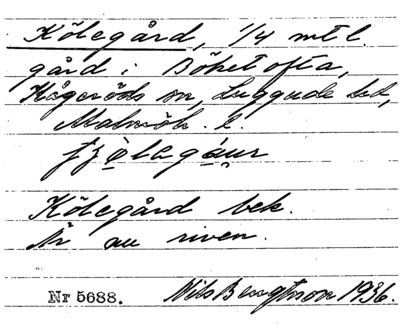 Kölegård, 1/4 mtl.
gård i Böketofta,
Kågeröds sn, Luggude hd,
Malmöh. l.
Kölegård bek.
Är nu riven.
Nr 5688. Nils Bengtsson 1936.